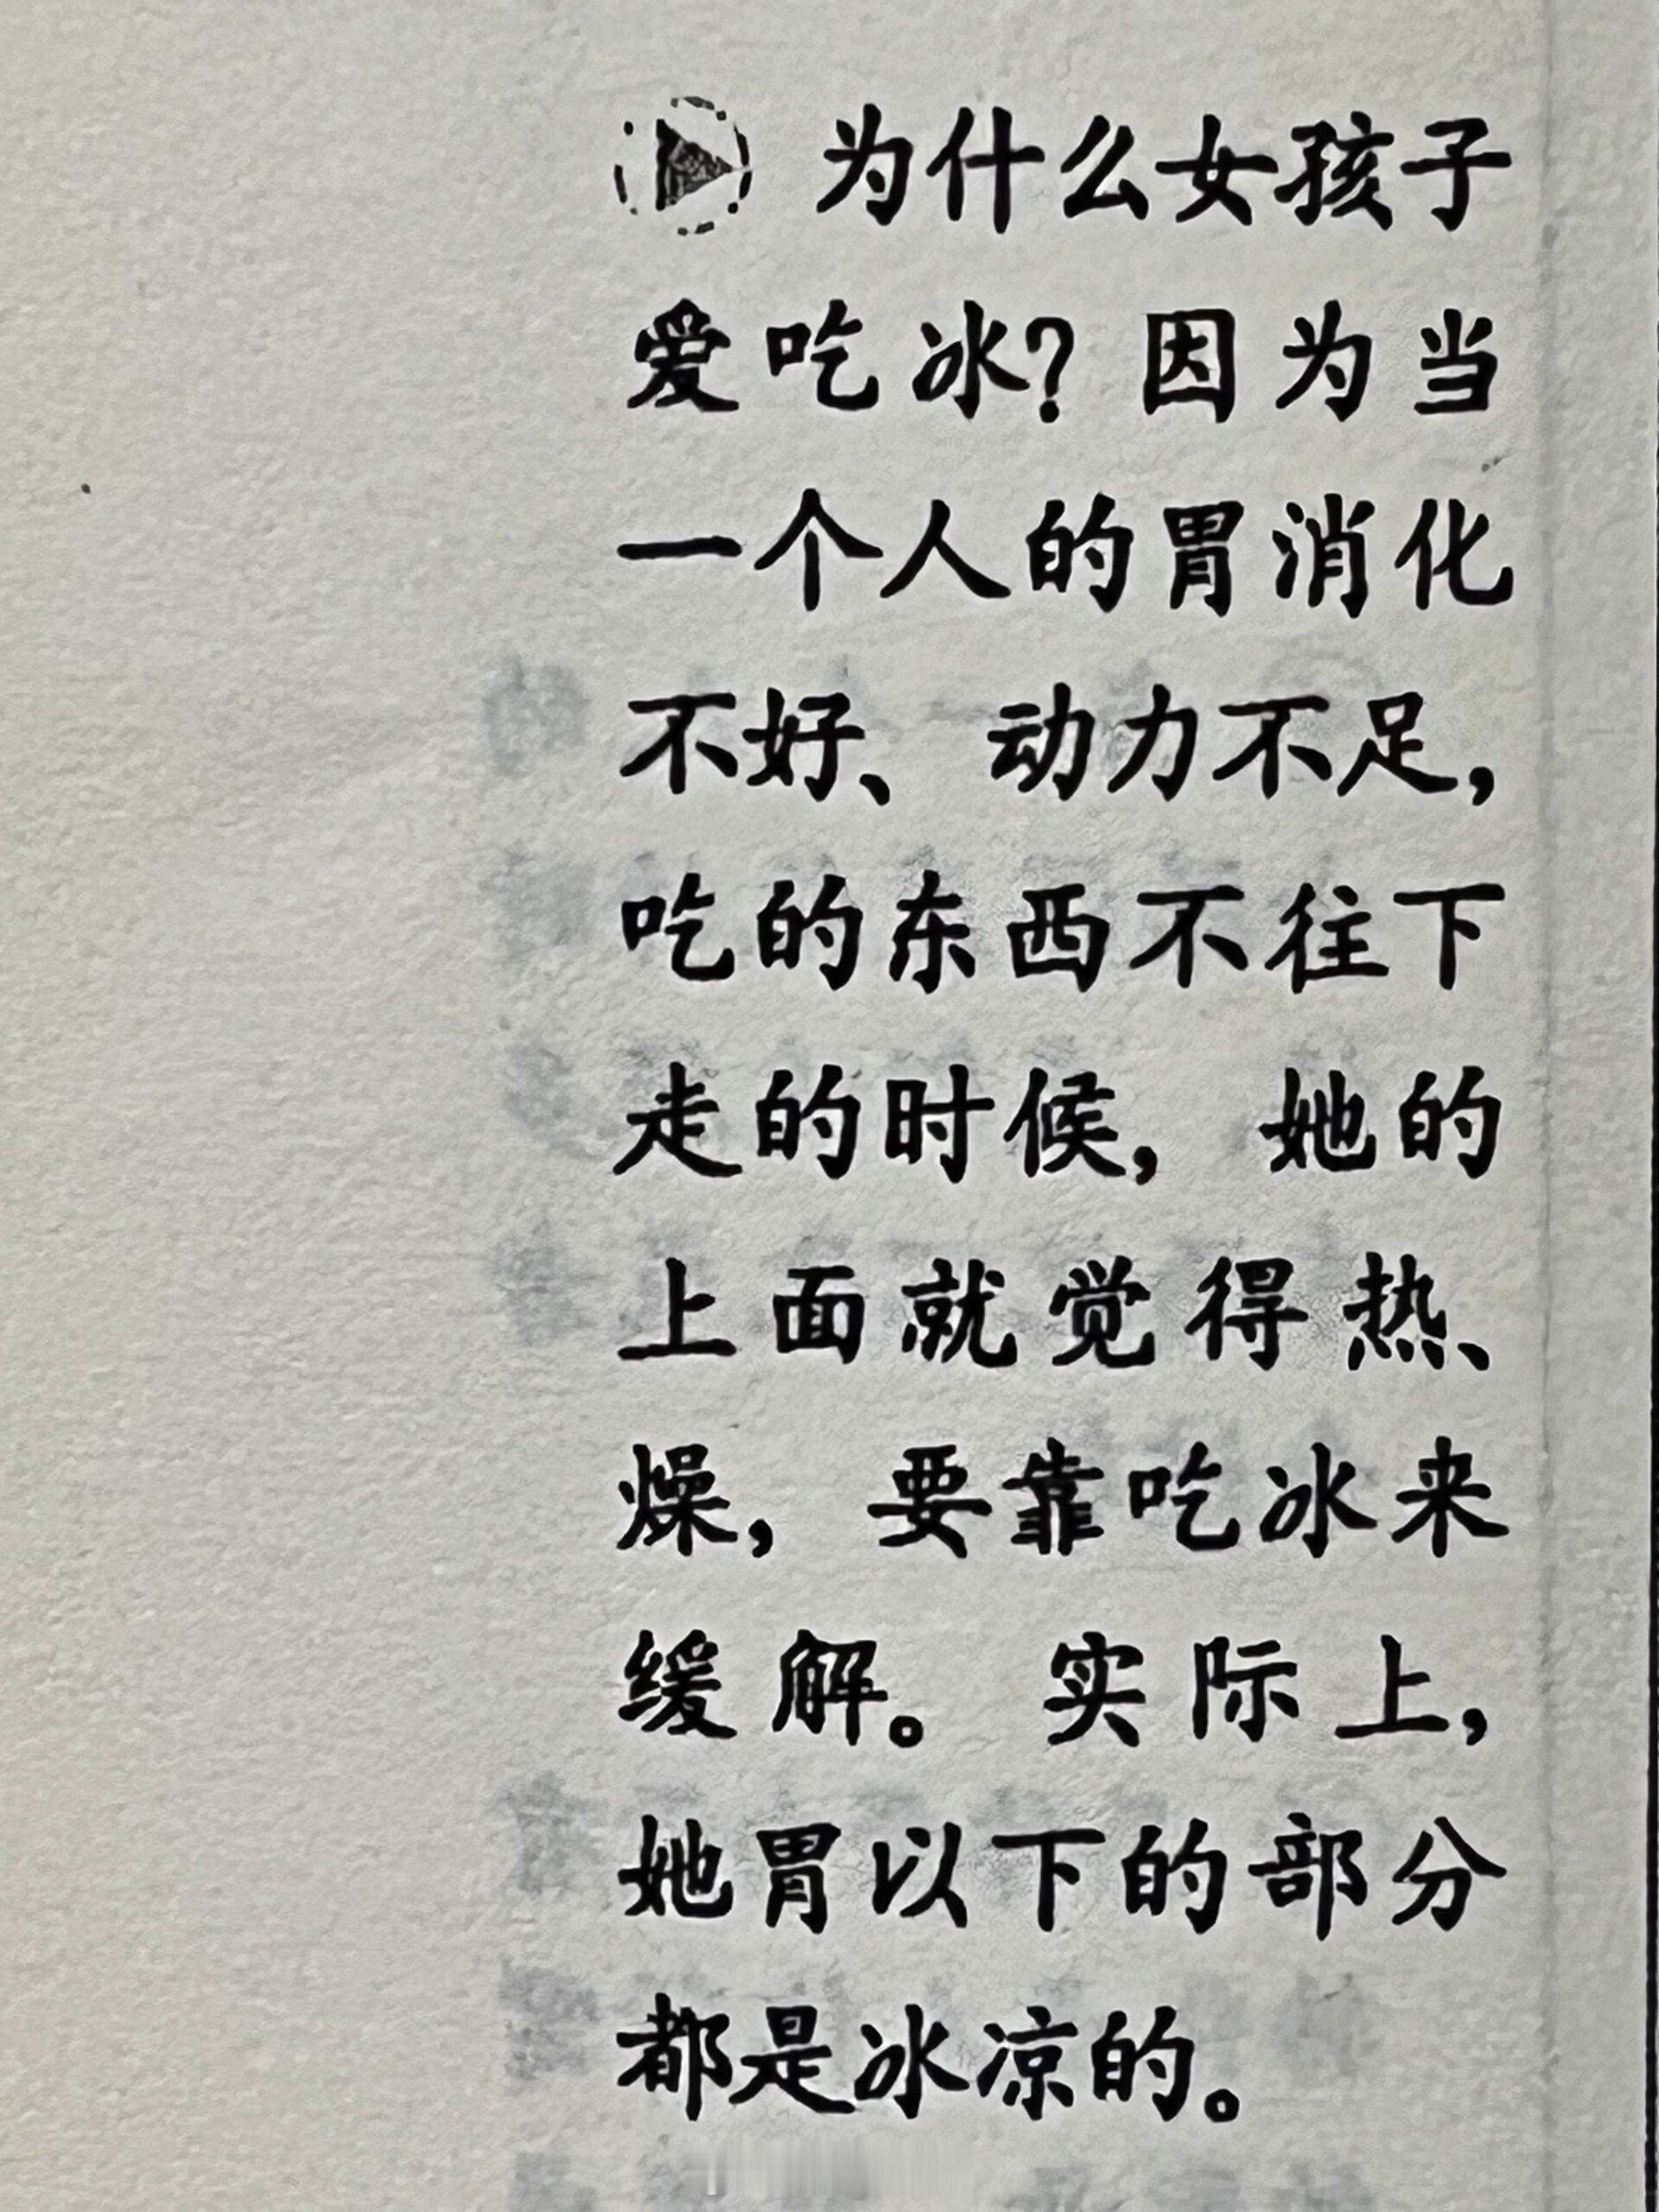 为什么女孩子
爱吃冰？因为当
一个人的胃消化
不好、动力不足，
吃的东西不往下
走的时候，她的
上面就觉得热、
燥，要靠吃冰来
缓解。实际上，
她胃以下的部分
都是冰凉的。